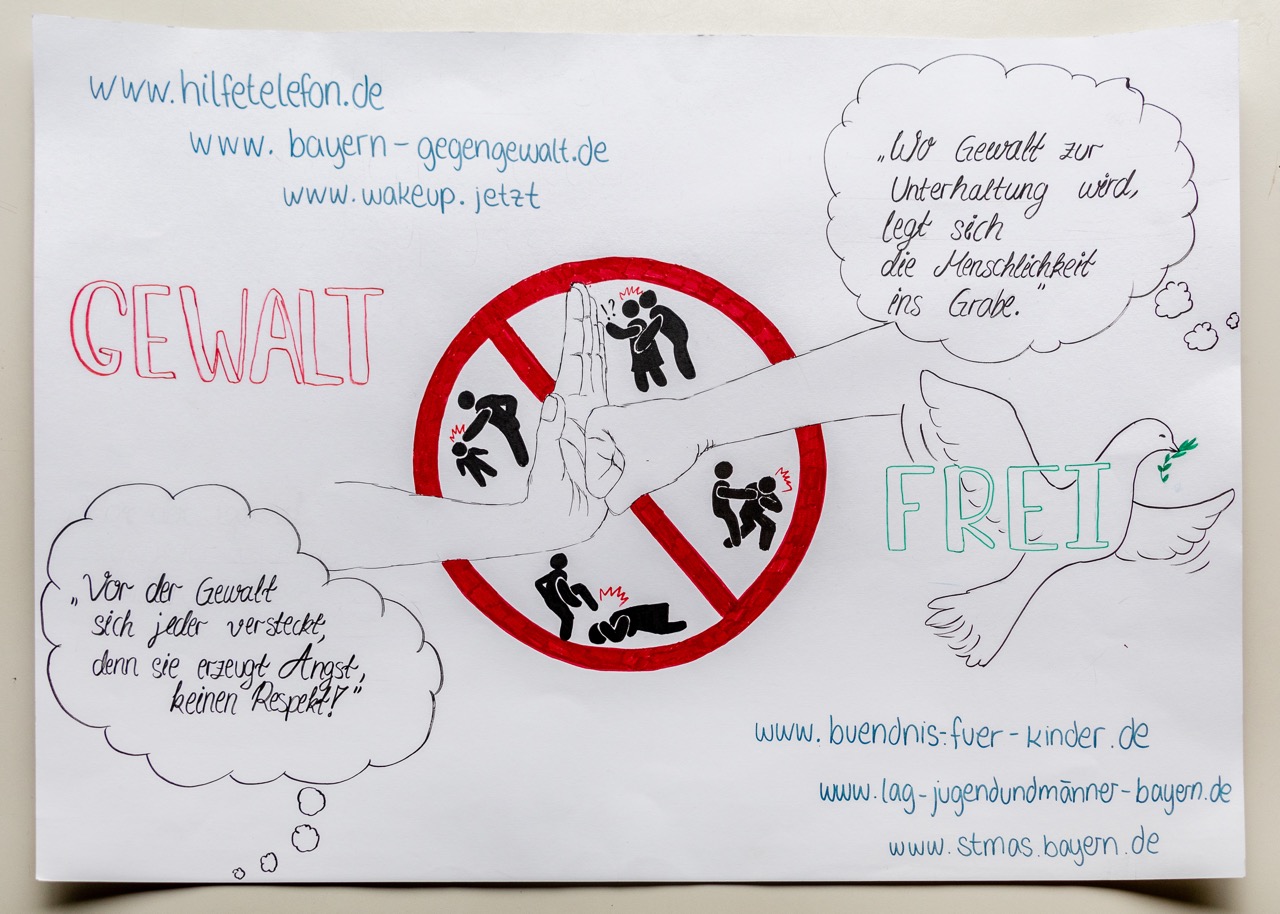 www.hilfetelefon.de
www.bayern-gegengewalt.de
www.wakeup.jetzt
„Wo Gewalt zur
Unterhaltung wird,
legt sich
die Menschlichkeit
ins Grabe."
GEWALT
!?
FREI
„Vor der Gewalt
sich jeder versteckt,
denn sie erzeugt Angst,
keinen Respekt!"
www.buendnis-fuer-kinder.de
www.lag-jugendundmänner-bayern.de
www.stmas.bayern.de